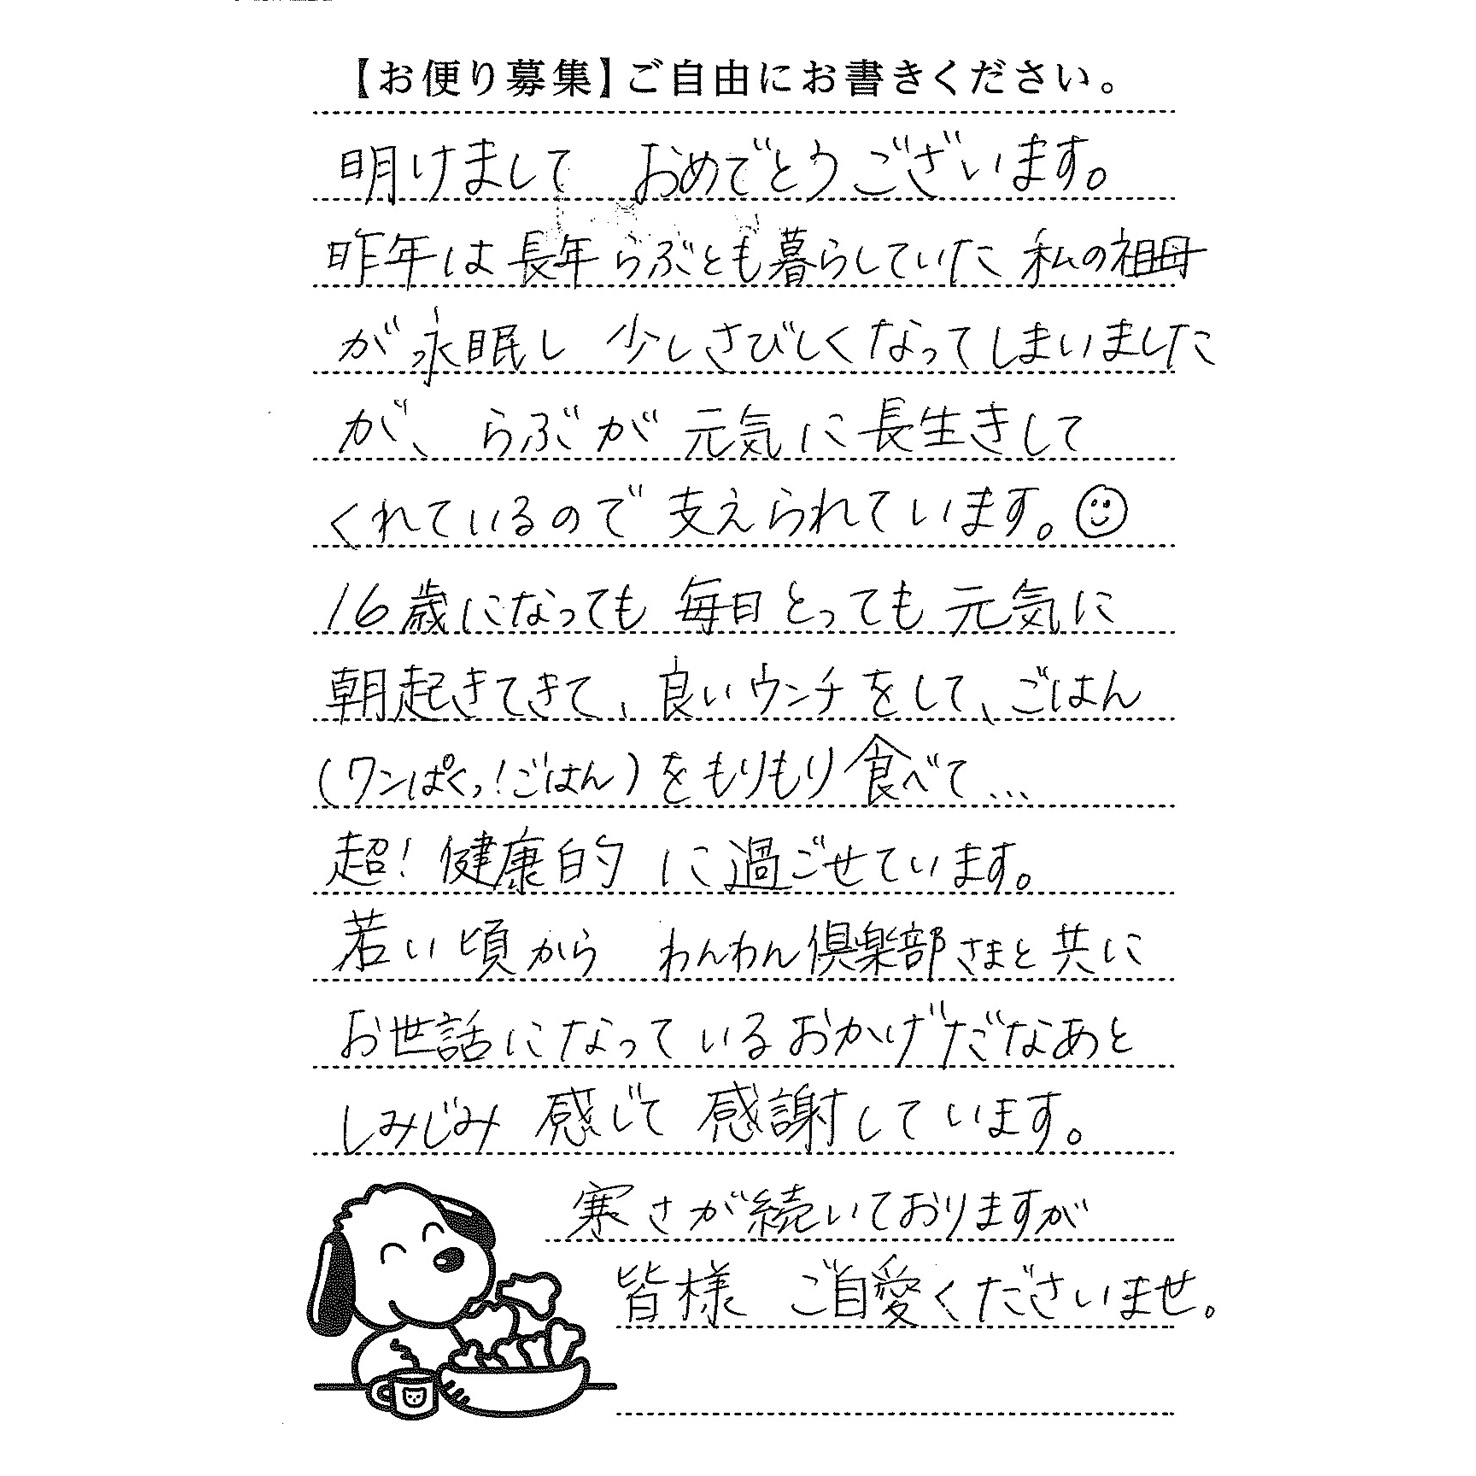 【お便り募集】ご自由にお書きください。
明けまして おめでとうございます。
昨年は長年らぶとも暮らしていた私の祖母
が永眠し 少しさびしくなってしまいました
が、らぶが元気に長生きして
くれているので支えられています。
16歳になっても毎日とっても元気に
朝起きてきて、良いウンチをして、ごはん
(ワンぱくっ!ごはん)をもりもり食べて...
超!健康的に過ごせています。
若い頃から わんわん倶楽部さまと共に
お世話になっているおかげだなあと
しみじみ感じて感謝しています。
寒さが続いておりますが
皆様 ご自愛くださいませ。